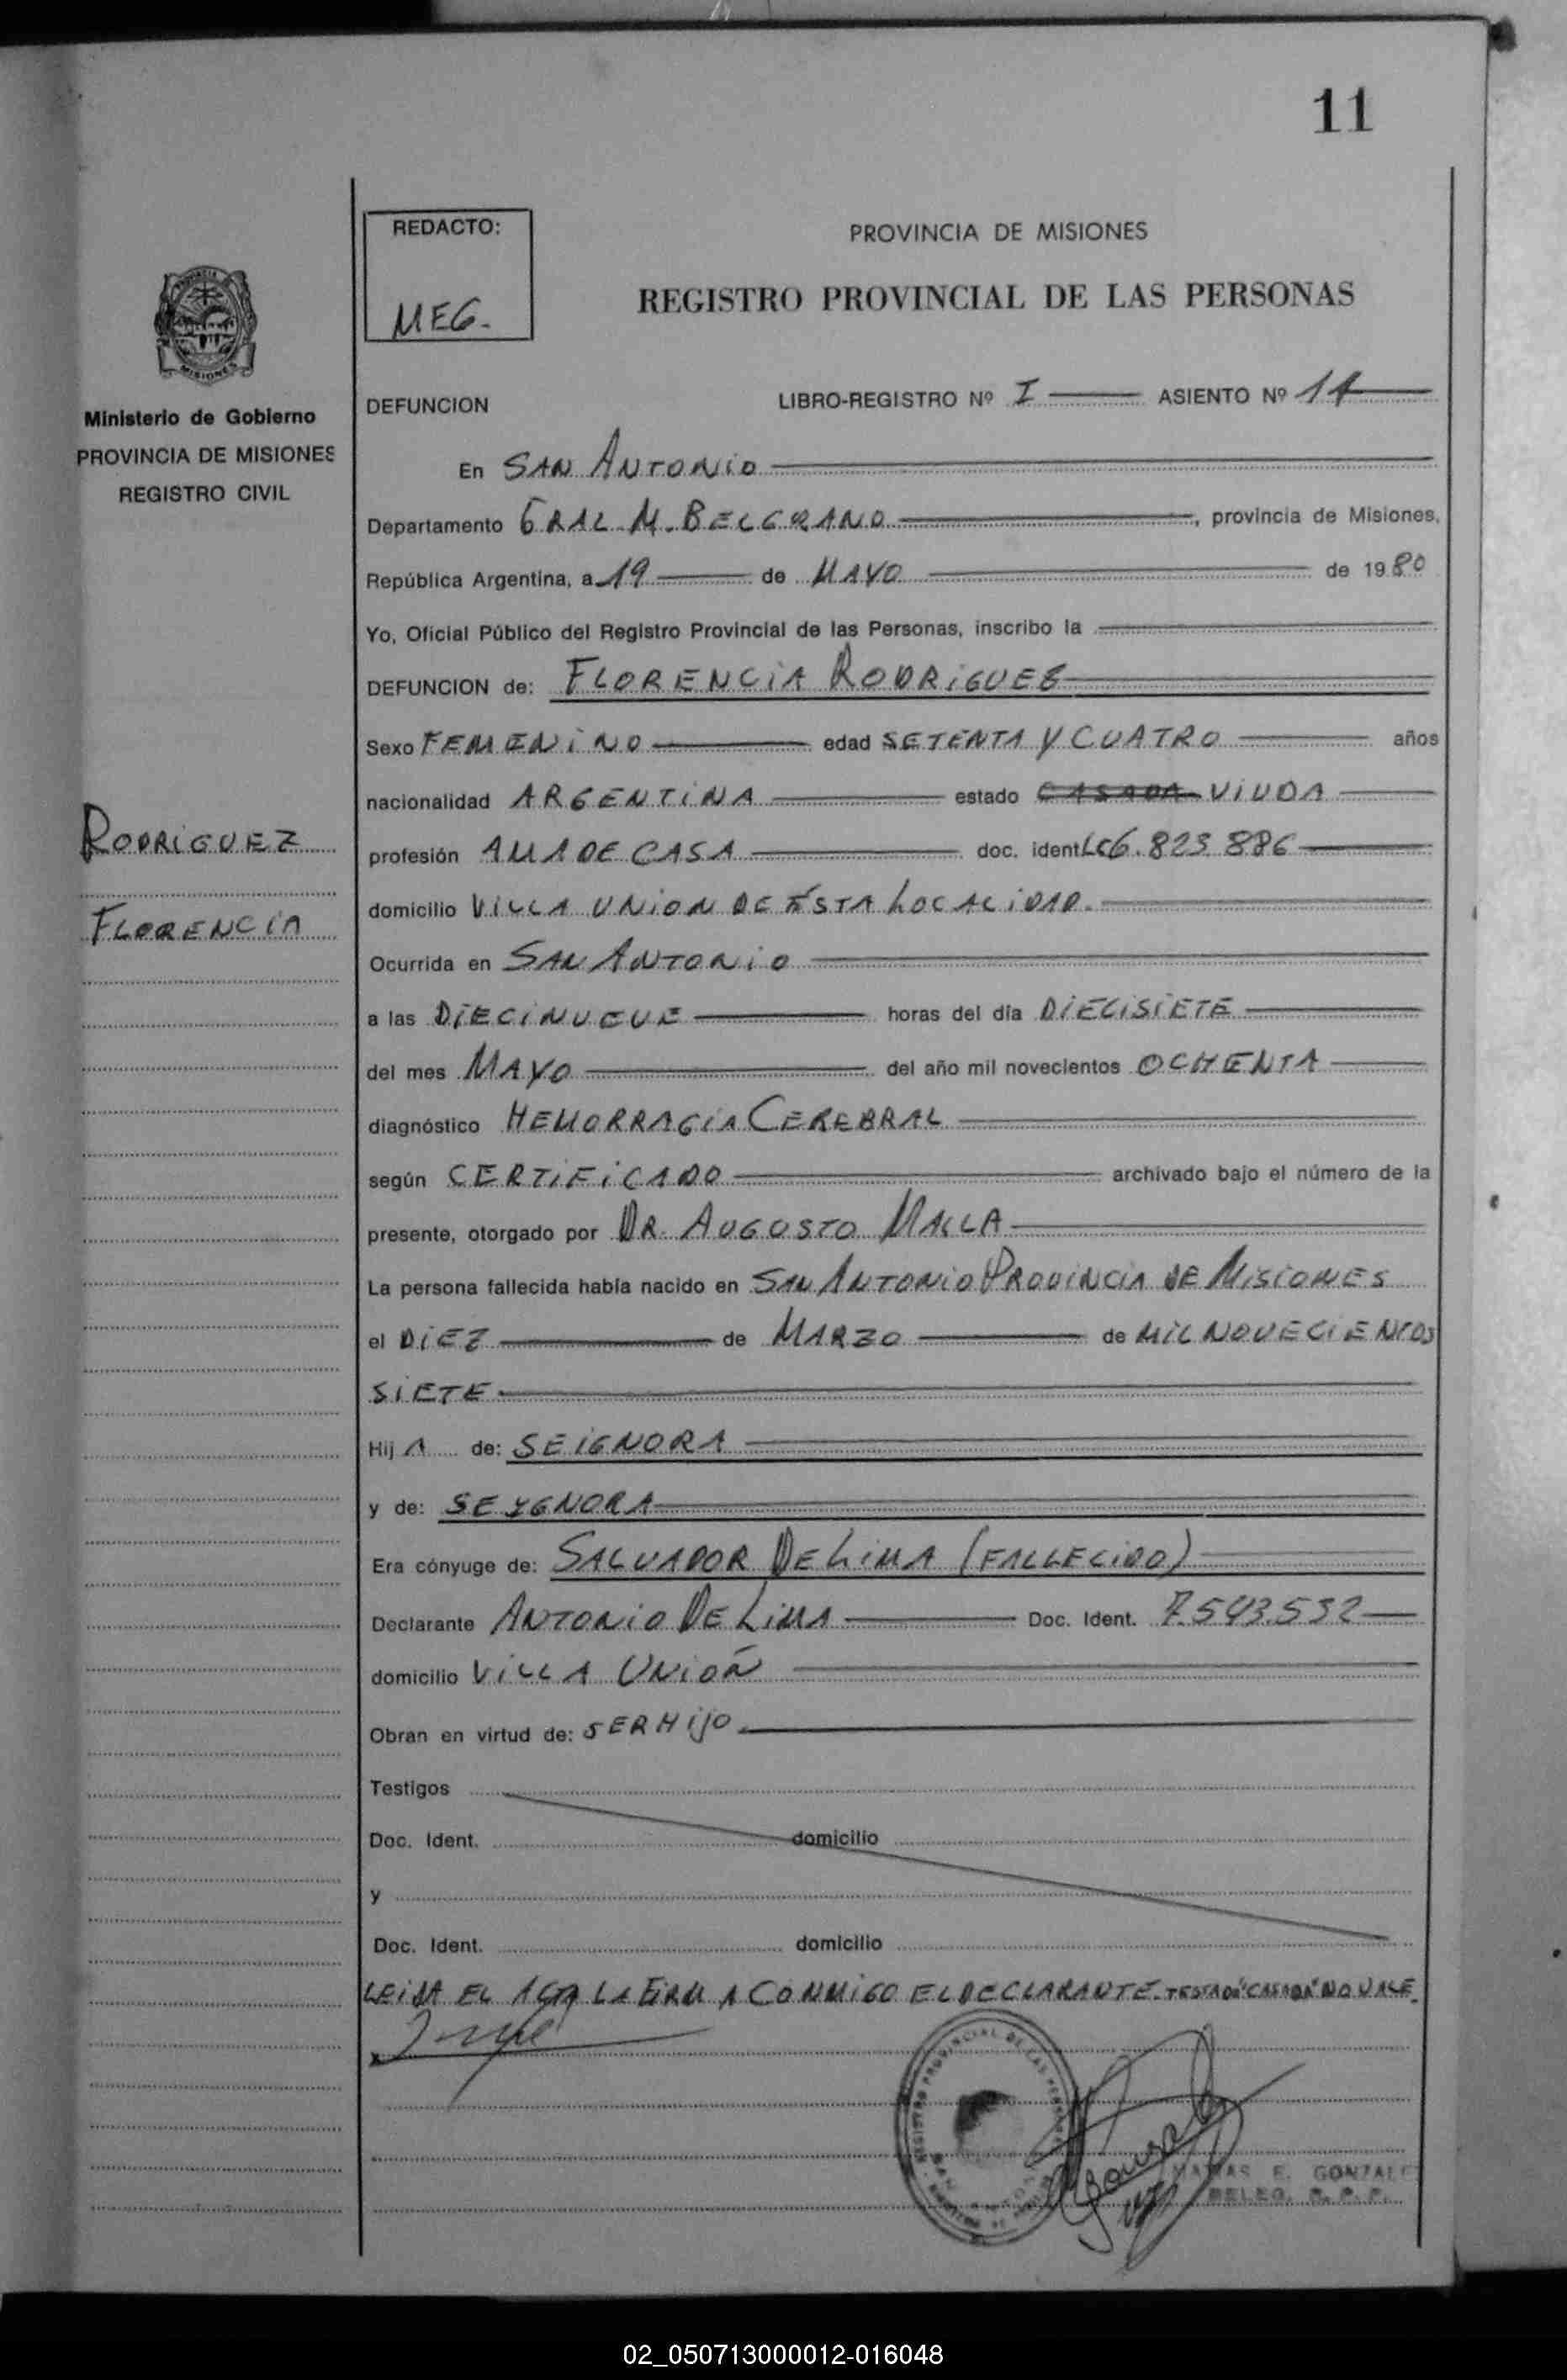 11
REDACTO:
MEG.
PROVINCIA DE MISIONES
REGISTRO PROVINCIAL DE LAS PERSONAS
PROVINCIA
MISIONES
Ministerio de Gobierno
PROVINCIA DE MISIONES
REGISTRO CIVIL
RODRIGUEZ
FLORENCIA
DEFUNCION LIBRO-REGISTRO Nº I ASIENTO Nº 11
En SAN ANTONIO
Departamento GRAL M. BELGRANO, provincia de Misiones,
República Argentina, a 19 de MAYO de 1980
Yo, Oficial Público del Registro Provincial de las Personas, inscribo la
DEFUNCION de: FLORENCIA RODRIGUEZ
Sexo FEMENINO edad SETENTA Y CUATRO años
nacionalidad ARGENTINA estado CASADA VIUDA
profesión AMA DE CASA doc. ident LC6.823.886
domicilio VILLA UNION DE ÉSTA LOCALIDAD.
Ocurrida en SAN ANTONIO
a las DIECINUEVE horas del día DIECISIETE
del mes MAYO del año mil novecientos OCHENTA
diagnóstico HEMORRAGIA CEREBRAL
según CERTIFICADO archivado bajo el número de la
presente, otorgado por DR. AUGUSTO MALLA
La persona fallecida había nacido en SAN ANTONIO PROVINCIA DE MISIONES
el DIEZ de MARZO de MIL NOVECIENTOS
SIETE
Hij A de: SE IGNORA
y de: SE YGNORA
Era cónyuge de: SALVADOR DE LIMA (FALLECIDO)
Declarante ANTONIO DE LIMA Doc. Ident. 7.543.532
domicilio VILLA UNIÓN
Obran en virtud de: SER HIJO
Testigos
Doc. Ident. domicilio
y
Doc. Ident. domicilio
LEIDA EL ACTA LA FIRMA CONMIGO EL DECLARANTE. TESTADO "CASADA" NO VALE.
MATIAS E. GONZALE
DELEG. R. P. P.
02_050713000012-016048